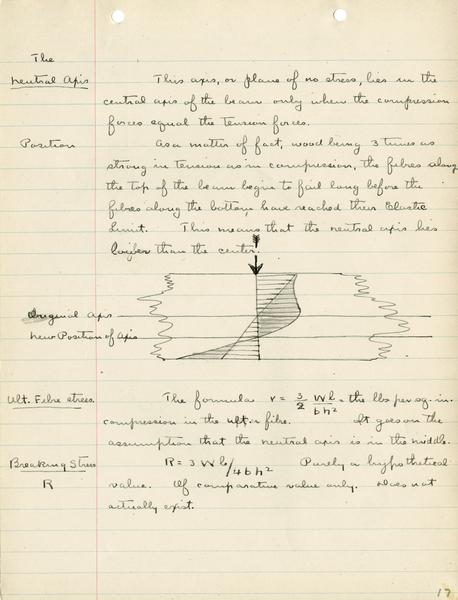 The
Neutral Axis
This axis, or plane of no stress, lies in the
central axis of the beam only when the compression
forces equal the tension forces.
Position
As a matter of fact, wood being 3 times as
strong in tension as in compression, the fibres along
the top of the beam begin to fail long before the
fibres along the bottom, have reached their Elastic
Limit. This means that the neutral axis lies
than the center.
Original Axis
New Position of Axis
Ult. Fibre stress.
The formula r = 3/2 Wl/bh² = the lbs per sq. in.
compression in the ult. or fibre. It goes on the
assumption that the neutral axis is in the middle.
Breaking Stress
R
R = 3Wl/4bh² Purely a hypothetical
value. Of comparative value only. Does not
actually exist.
17